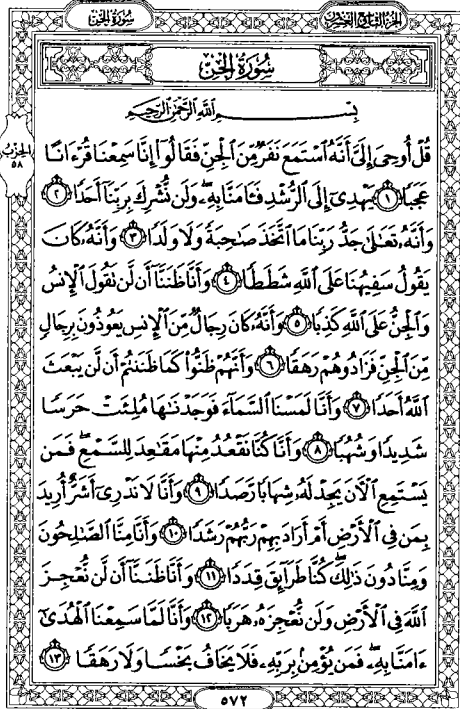 سُورَةُ الجِنّ
الجزء التاسع والعشرون
سُورَةُ الجِنّ
بِسْمِ اللَّهِ الرَّحْمَٰنِ الرَّحِيمِ
الحزب
٥٨
قُلْ أُوحِىَ إِلَىَّ أَنَّهُ ٱسْتَمَعَ نَفَرٌ مِّنَ ٱلْجِنِّ فَقَالُوٓا۟ إِنَّا سَمِعْنَا قُرْءَانًا
عَجَبًا ﴿١﴾ يَهْدِىٓ إِلَى ٱلرُّشْدِ فَـَٔامَنَّا بِهِۦ ۖ وَلَن نُّشْرِكَ بِرَبِّنَآ أَحَدًا ﴿٢﴾
وَأَنَّهُۥ تَعَٰلَىٰ جَدُّ رَبِّنَا مَا ٱتَّخَذَ صَٰحِبَةً وَلَا وَلَدًا ﴿٣﴾ وَأَنَّهُۥ كَانَ
يَقُولُ سَفِيهُنَا عَلَى ٱللَّهِ شَطَطًا ﴿٤﴾ وَأَنَّا ظَنَنَّآ أَن لَّن تَقُولَ ٱلْإِنسُ
وَٱلْجِنُّ عَلَى ٱللَّهِ كَذِبًا ﴿٥﴾ وَأَنَّهُۥ كَانَ رِجَالٌ مِّنَ ٱلْإِنسِ يَعُوذُونَ بِرِجَالٍ
مِّنَ ٱلْجِنِّ فَزَادُوهُمْ رَهَقًا ﴿٦﴾ وَأَنَّهُمْ ظَنُّوا۟ كَمَا ظَنَنتُمْ أَن لَّن يَبْعَثَ
ٱللَّهُ أَحَدًا ﴿٧﴾ وَأَنَّا لَمَسْنَا ٱلسَّمَآءَ فَوَجَدْنَٰهَا مُلِئَتْ حَرَسًا
شَدِيدًا وَشُهُبًا ﴿٨﴾ وَأَنَّا كُنَّا نَقْعُدُ مِنْهَا مَقَٰعِدَ لِلسَّمْعِ ۖ فَمَن
يَسْتَمِعِ ٱلْآنَ يَجِدْ لَهُۥ شِهَابًا رَّصَدًا ﴿٩﴾ وَأَنَّا لَا نَدْرِىٓ أَشَرٌّ أُرِيدَ
بِمَن فِى ٱلْأَرْضِ أَمْ أَرَادَ بِهِمْ رَبُّهُمْ رَشَدًا ﴿١٠﴾ وَأَنَّا مِنَّا ٱلصَّٰلِحُونَ
وَمِنَّا دُونَ ذَٰلِكَ ۖ كُنَّا طَرَآئِقَ قِدَدًا ﴿١١﴾ وَأَنَّا ظَنَنَّآ أَن لَّن نُّعْجِزَ
ٱللَّهَ فِى ٱلْأَرْضِ وَلَن نُّعْجِزَهُۥ هَرَبًا ﴿١٢﴾ وَأَنَّا لَمَّا سَمِعْنَا ٱلْهُدَىٰٓ
ءَامَنَّا بِهِۦ ۖ فَمَن يُؤْمِنۢ بِرَبِّهِۦ فَلَا يَخَافُ بَخْسًا وَلَا رَهَقًا ﴿١٣﴾
٥٧٢